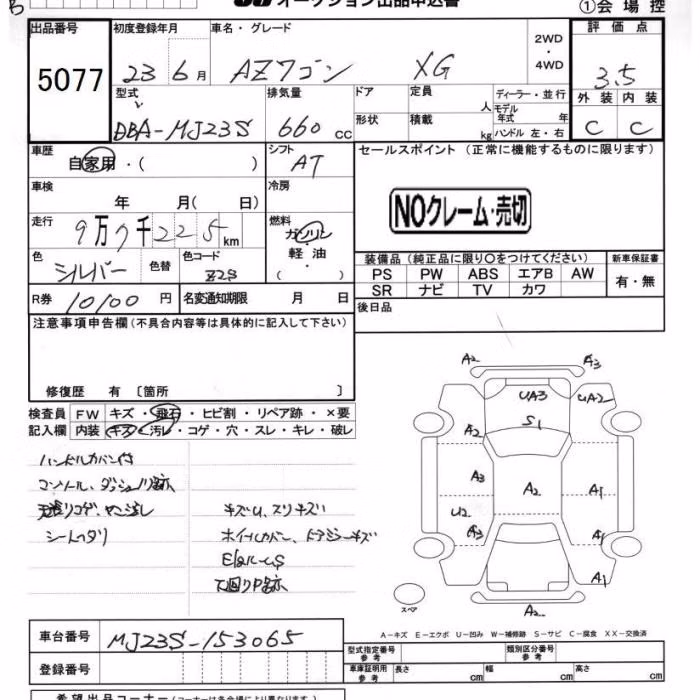 オークション出品申込書
①会場控
出品番号 初度登録年月 車名・グレード 評価点
5077 23 6月 AZワゴン XG 2WD・4WD 3.5
型式 排気量 ドア 定員 人 ディーラー・並行 外装 内装
DBA-MJ23S 660cc 形状 積載 kg モデル年式 年 ハンドル 左・右 C C
車歴 シフト セールスポイント (正常に機能するものに限ります)
自家用・( ) AT
車検 冷房
年 月( 日)
NOクレーム・売切
走行 燃料
9万7千225km ガソリン
軽・油
( )
色 色替 色コード 装備品 (純正品に限り○をつけてください) 新車保証書
シルバー Z2S PS PW ABS エアB AW 有・無
SR ナビ TV カワ
R券 10100円 名変通知期限 月 日 後日品
注意事項申告欄 (不具合内容等は具体的に記入して下さい)
修復歴 有 〔箇所 〕
検査員 FW キズ・飛石・ヒビ割・リペア跡・×要
記入欄 内装 キズ・汚レ・コゲ・穴・スレ・キレ・破レ
ハンドルカバー付
キズU、スリキズ
シートヘタリ
A2 A3
UA3 UA2
S1
A2
A3 A2 A1
U2
A3 A1
A1
A2
スペア
A−キズ E−エクボ U−凹み W−補修跡 S−サビ C−腐食 XX−交換済
車台番号 MJ23S-153065
型式指定番号 参考 類別区分番号 参考
登録番号
車庫証明用 参考 長さ cm 幅 cm 高さ cm
希望出品コーナー